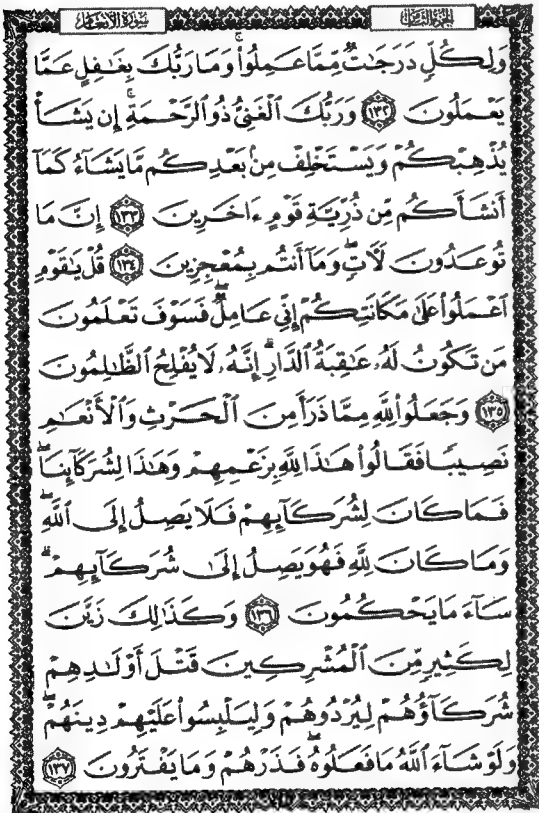 سورة الأنعام
الجزء الثامن
وَلِكُلٍّ دَرَجَٰتٌ مِّمَّا عَمِلُوا۟ ۚ وَمَا رَبُّكَ بِغَٰفِلٍ عَمَّا
يَعْمَلُونَ ١٣٢ وَرَبُّكَ ٱلْغَنِىُّ ذُو ٱلرَّحْمَةِ ۚ إِن يَشَأْ
يُذْهِبْكُمْ وَيَسْتَخْلِفْ مِنۢ بَعْدِكُم مَّا يَشَآءُ كَمَآ
أَنشَأَكُم مِّن ذُرِّيَّةِ قَوْمٍ ءَاخَرِينَ ١٣٣ إِنَّ مَا
تُوعَدُونَ لَءَاتٍ ۖ وَمَآ أَنتُم بِمُعْجِزِينَ ١٣٤ قُلْ يَٰقَوْمِ
ٱعْمَلُوا۟ عَلَىٰ مَكَانَتِكُمْ إِنِّى عَامِلٌ ۖ فَسَوْفَ تَعْلَمُونَ
مَن تَكُونُ لَهُۥ عَٰقِبَةُ ٱلدَّارِ ۗ إِنَّهُۥ لَا يُفْلِحُ ٱلظَّٰلِمُونَ
١٣٥ وَجَعَلُوا۟ لِلَّهِ مِمَّا ذَرَأَ مِنَ ٱلْحَرْثِ وَٱلْأَنْعَٰمِ
نَصِيبًا فَقَالُوا۟ هَٰذَا لِلَّهِ بِزَعْمِهِمْ وَهَٰذَا لِشُرَكَآئِنَا ۖ
فَمَا كَانَ لِشُرَكَآئِهِمْ فَلَا يَصِلُ إِلَى ٱللَّهِ ۖ
وَمَا كَانَ لِلَّهِ فَهُوَ يَصِلُ إِلَىٰ شُرَكَآئِهِمْ ۗ
سَآءَ مَا يَحْكُمُونَ ١٣٦ وَكَذَٰلِكَ زَيَّنَ
لِكَثِيرٍ مِّنَ ٱلْمُشْرِكِينَ قَتْلَ أَوْلَٰدِهِمْ
شُرَكَآؤُهُمْ لِيُرْدُوهُمْ وَلِيَلْبِسُوا۟ عَلَيْهِمْ دِينَهُمْ ۖ
وَلَوْ شَآءَ ٱللَّهُ مَا فَعَلُوهُ ۖ فَذَرْهُمْ وَمَا يَفْتَرُونَ ١٣٧